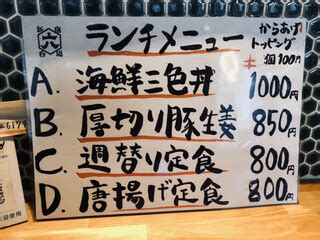 ランチメニュー
からあげ
トッピング
1個100円
A. 海鮮三色丼 1000円
B. 厚切り豚生姜 850円
C. 週替り定食 800円
D. 唐揚げ定食 800円